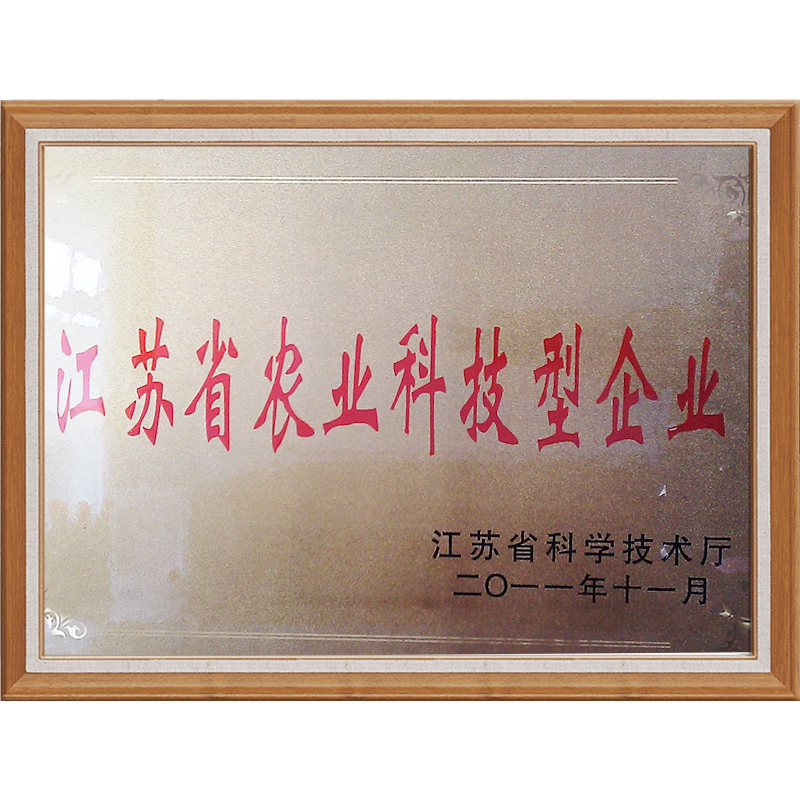 江苏省农业科技型企业
江苏省科学技术厅
二〇一一年十一月